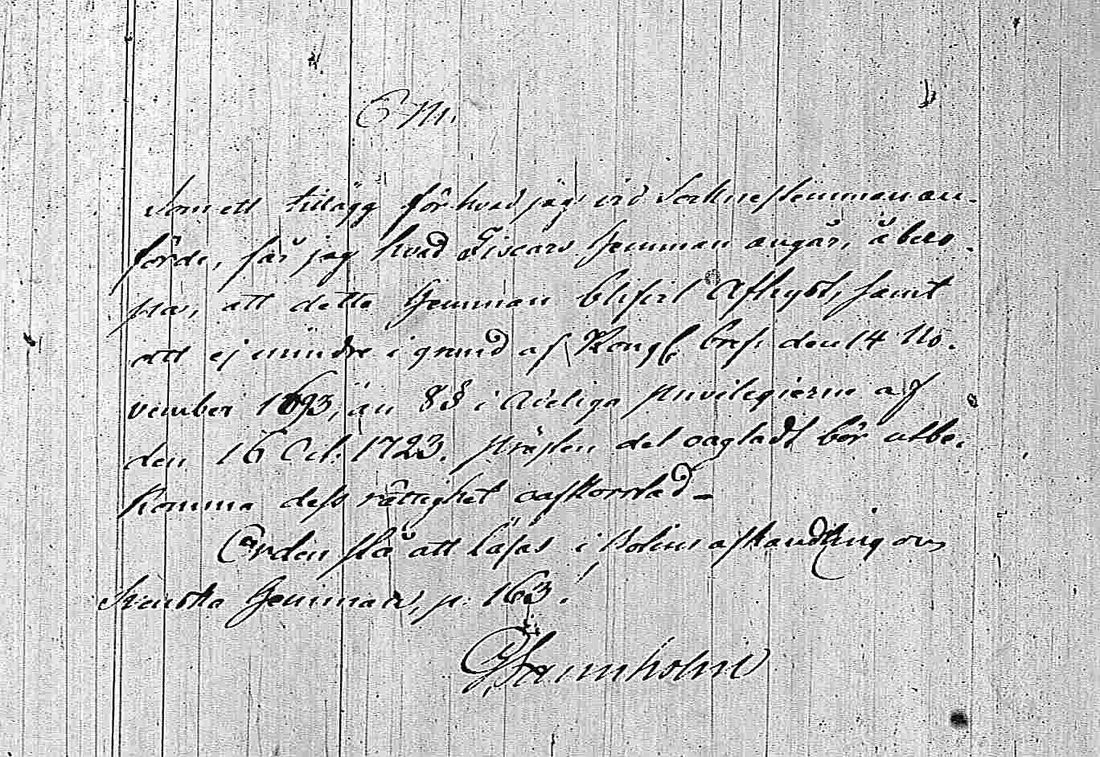 P.M.
Som ett tillägg för hvad jag vid Socknestemman an-
förde, får jag hvad Fiscars Hemman angår, åbero-
pa, att detta Hemman blifvit afhyst, samt
att ej mindre i grund af Kongl. bref den 14 No-
vember 1693, än 8 § i Adeliga privilegierne af
den 16 Oct. 1723. Presten det oagtadt bör utbe-
komma dess rättighet oafkortad_
Orden stå att läsas i afhandling om
Svenska Hemman, p. 163.